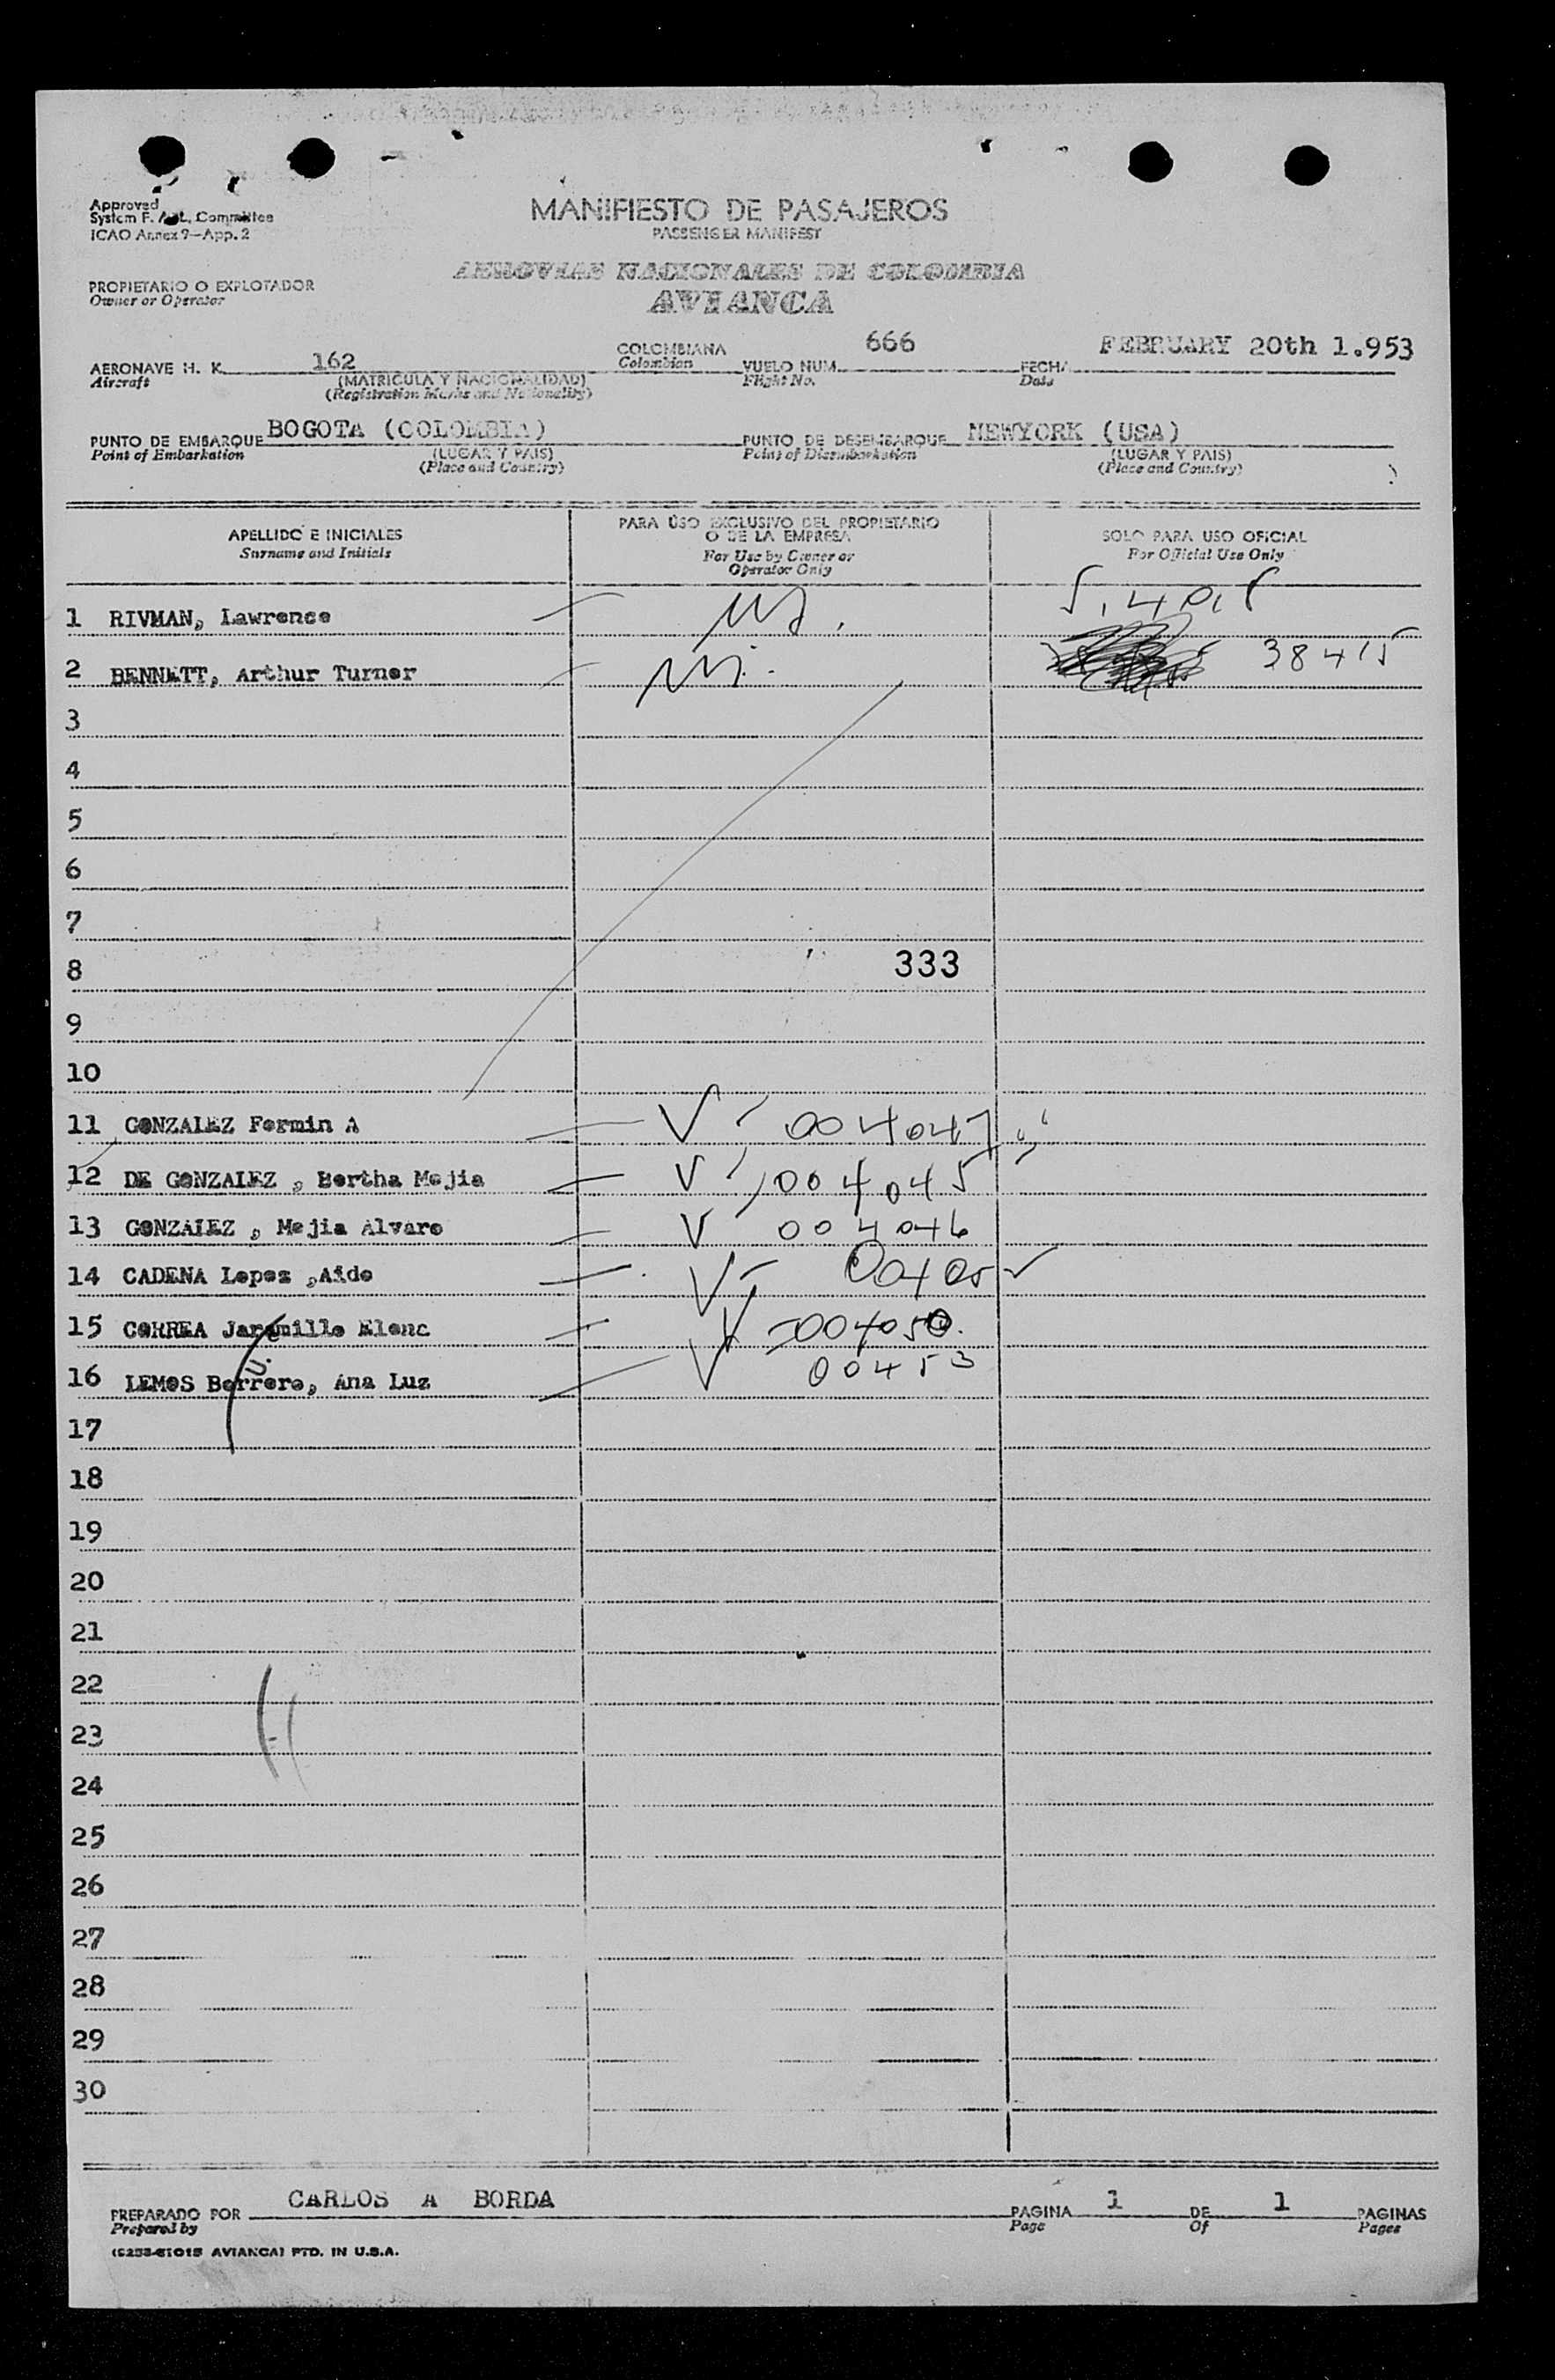 Approved
System F. Aut. Committee
ICAO Annex 9—App. 2
MANIFIESTO DE PASAJEROS
PASSENGER MANIFEST
PROPIETARIO O EXPLOTADOR
Owner or Operator
AEROVIAS NACIONALES DE COLOMBIA
AVIANCA
AERONAVE H. K. 162 COLOMBIANA VUELO NUM. 666 FECHA FEBRUARY 20th 1.953
Aircraft (MATRICULA Y NACIONALIDAD) Colombian Flight No. Date
(Registration Marks and Nationality)
PUNTO DE EMBARQUE BOGOTA (COLOMBIA) PUNTO DE DESEMBARQUE NEWYORK (USA)
Point of Embarkation (LUGAR Y PAIS) Point of Disembarkation (LUGAR Y PAIS)
(Place and Country) (Place and Country)
APELLIDO E INICIALES
Surname and Initials
PARA USO EXCLUSIVO DEL PROPIETARIO
O DE LA EMPRESA
For Use by Owner or
Operator Only
SOLO PARA USO OFICIAL
For Official Use Only
1 RIVMAN, Lawrence
2 BENNETT, Arthur Turner 38415
3
4
5
6
7
8 333
9
10
11 GONZALEZ Fermin A V 004047
12 DE GONZALEZ , Bertha Mejia V 004045
13 GONZALEZ , Mejia Alvaro V 004046
14 CADENA Lopez ,Aide V
15 CORREA Jaramillo Elena V 004050
16 LEMOS Berrero, Ana Luz V 00453
17
18
19
20
21
22
23
24
25
26
27
28
29
30
PREPARADO POR CARLOS A BORDA PAGINA 1 DE 1 PAGINAS
Prepared by Page Of Pages
AVIANCA) PTD. IN U.S.A.